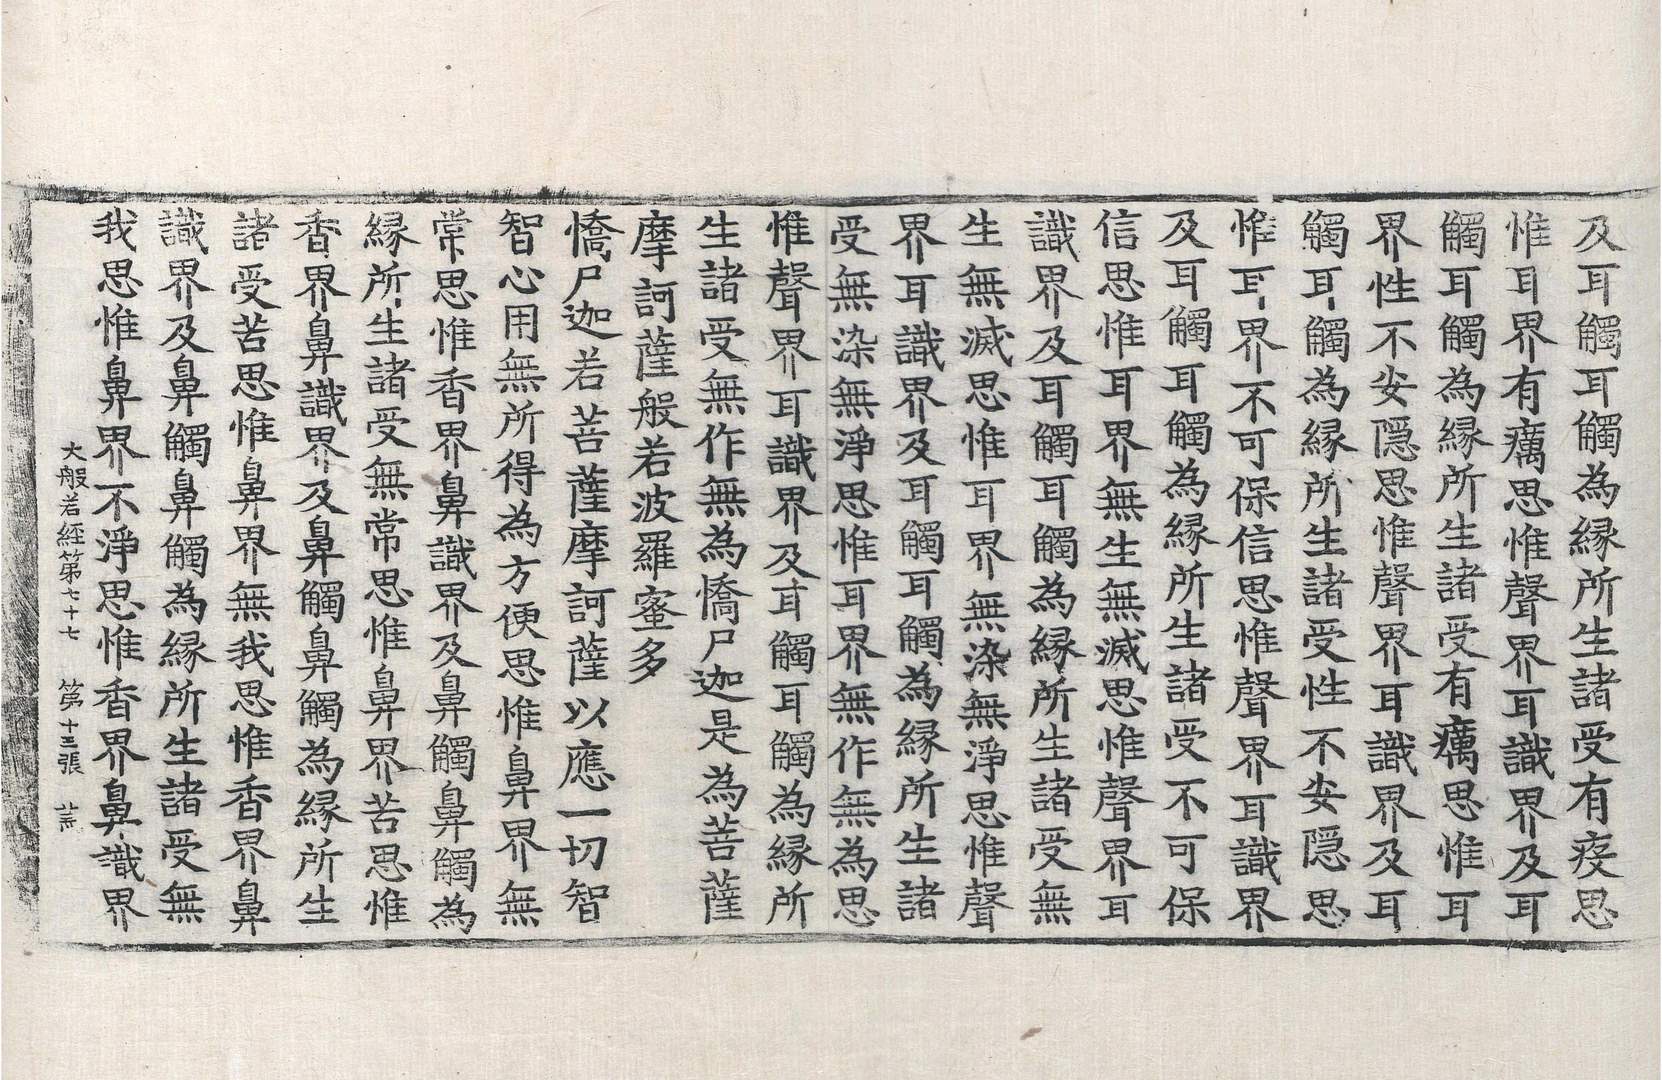 及耳觸耳觸為縁所生諸受有疾思
惟耳界有癘思惟聲界耳識界及耳
觸耳觸為縁所生諸受有癘思惟耳
界性不安隱思惟聲界耳識界及耳
觸耳觸為縁所生諸受性不安隱思
惟耳界不可保信思惟聲界耳識界
及耳觸耳觸為縁所生諸受不可保
信思惟耳界無生無滅思惟聲界耳
識界及耳觸耳觸為縁所生諸受無
生無滅思惟耳界無染無淨思惟聲
界耳識界及耳觸耳觸為縁所生諸
受無染無淨思惟耳界無作無為思
惟聲界耳識界及耳觸耳觸為縁所
生諸受無作無為憍尸迦是為菩薩
摩訶薩般若波羅蜜多
憍尸迦若菩薩摩訶薩以應一切智
智心用無所得為方便思惟鼻界無
常思惟香界鼻識界及鼻觸鼻觸為
縁所生諸受無常思惟鼻界苦思惟
香界鼻識界及鼻觸鼻觸為縁所生
諸受苦思惟鼻界無我思惟香界鼻
識界及鼻觸鼻觸為縁所生諸受無
我思惟鼻界不淨思惟香界鼻識界
大般若經第七十七 第十三張